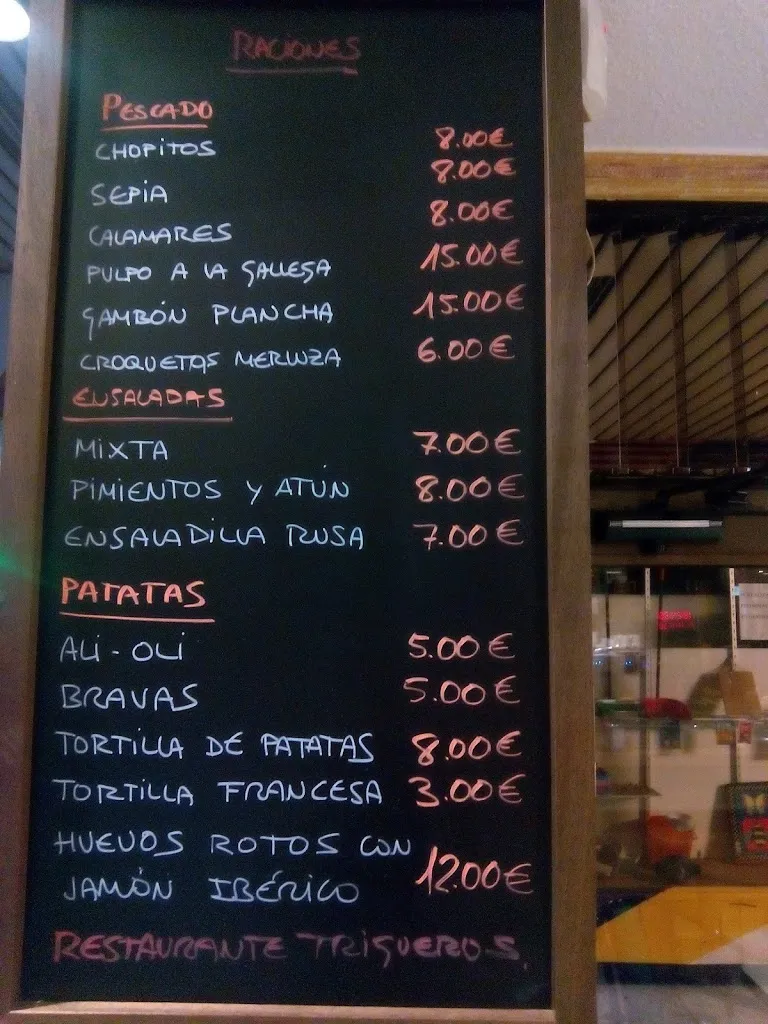 RACIONES
PESCADO
CHOPITOS 8.00€
SEPIA 8.00€
CALAMARES 8.00€
PULPO A LA GALLEGA 15.00€
GAMBÓN PLANCHA 15.00€
CROQUETAS MERLUZA 6.00€
ENSALADAS
MIXTA 7.00€
PIMIENTOS Y ATÚN 8.00€
ENSALADILLA RUSA 7.00€
PATATAS
ALI-OLI 5.00€
BRAVAS 5.00€
TORTILLA DE PATATAS 8.00€
TORTILLA FRANCESA 3.00€
HUEVOS ROTOS CON
JAMÓN IBÉRICO 12.00€
RESTAURANTE TRIGUEROS.